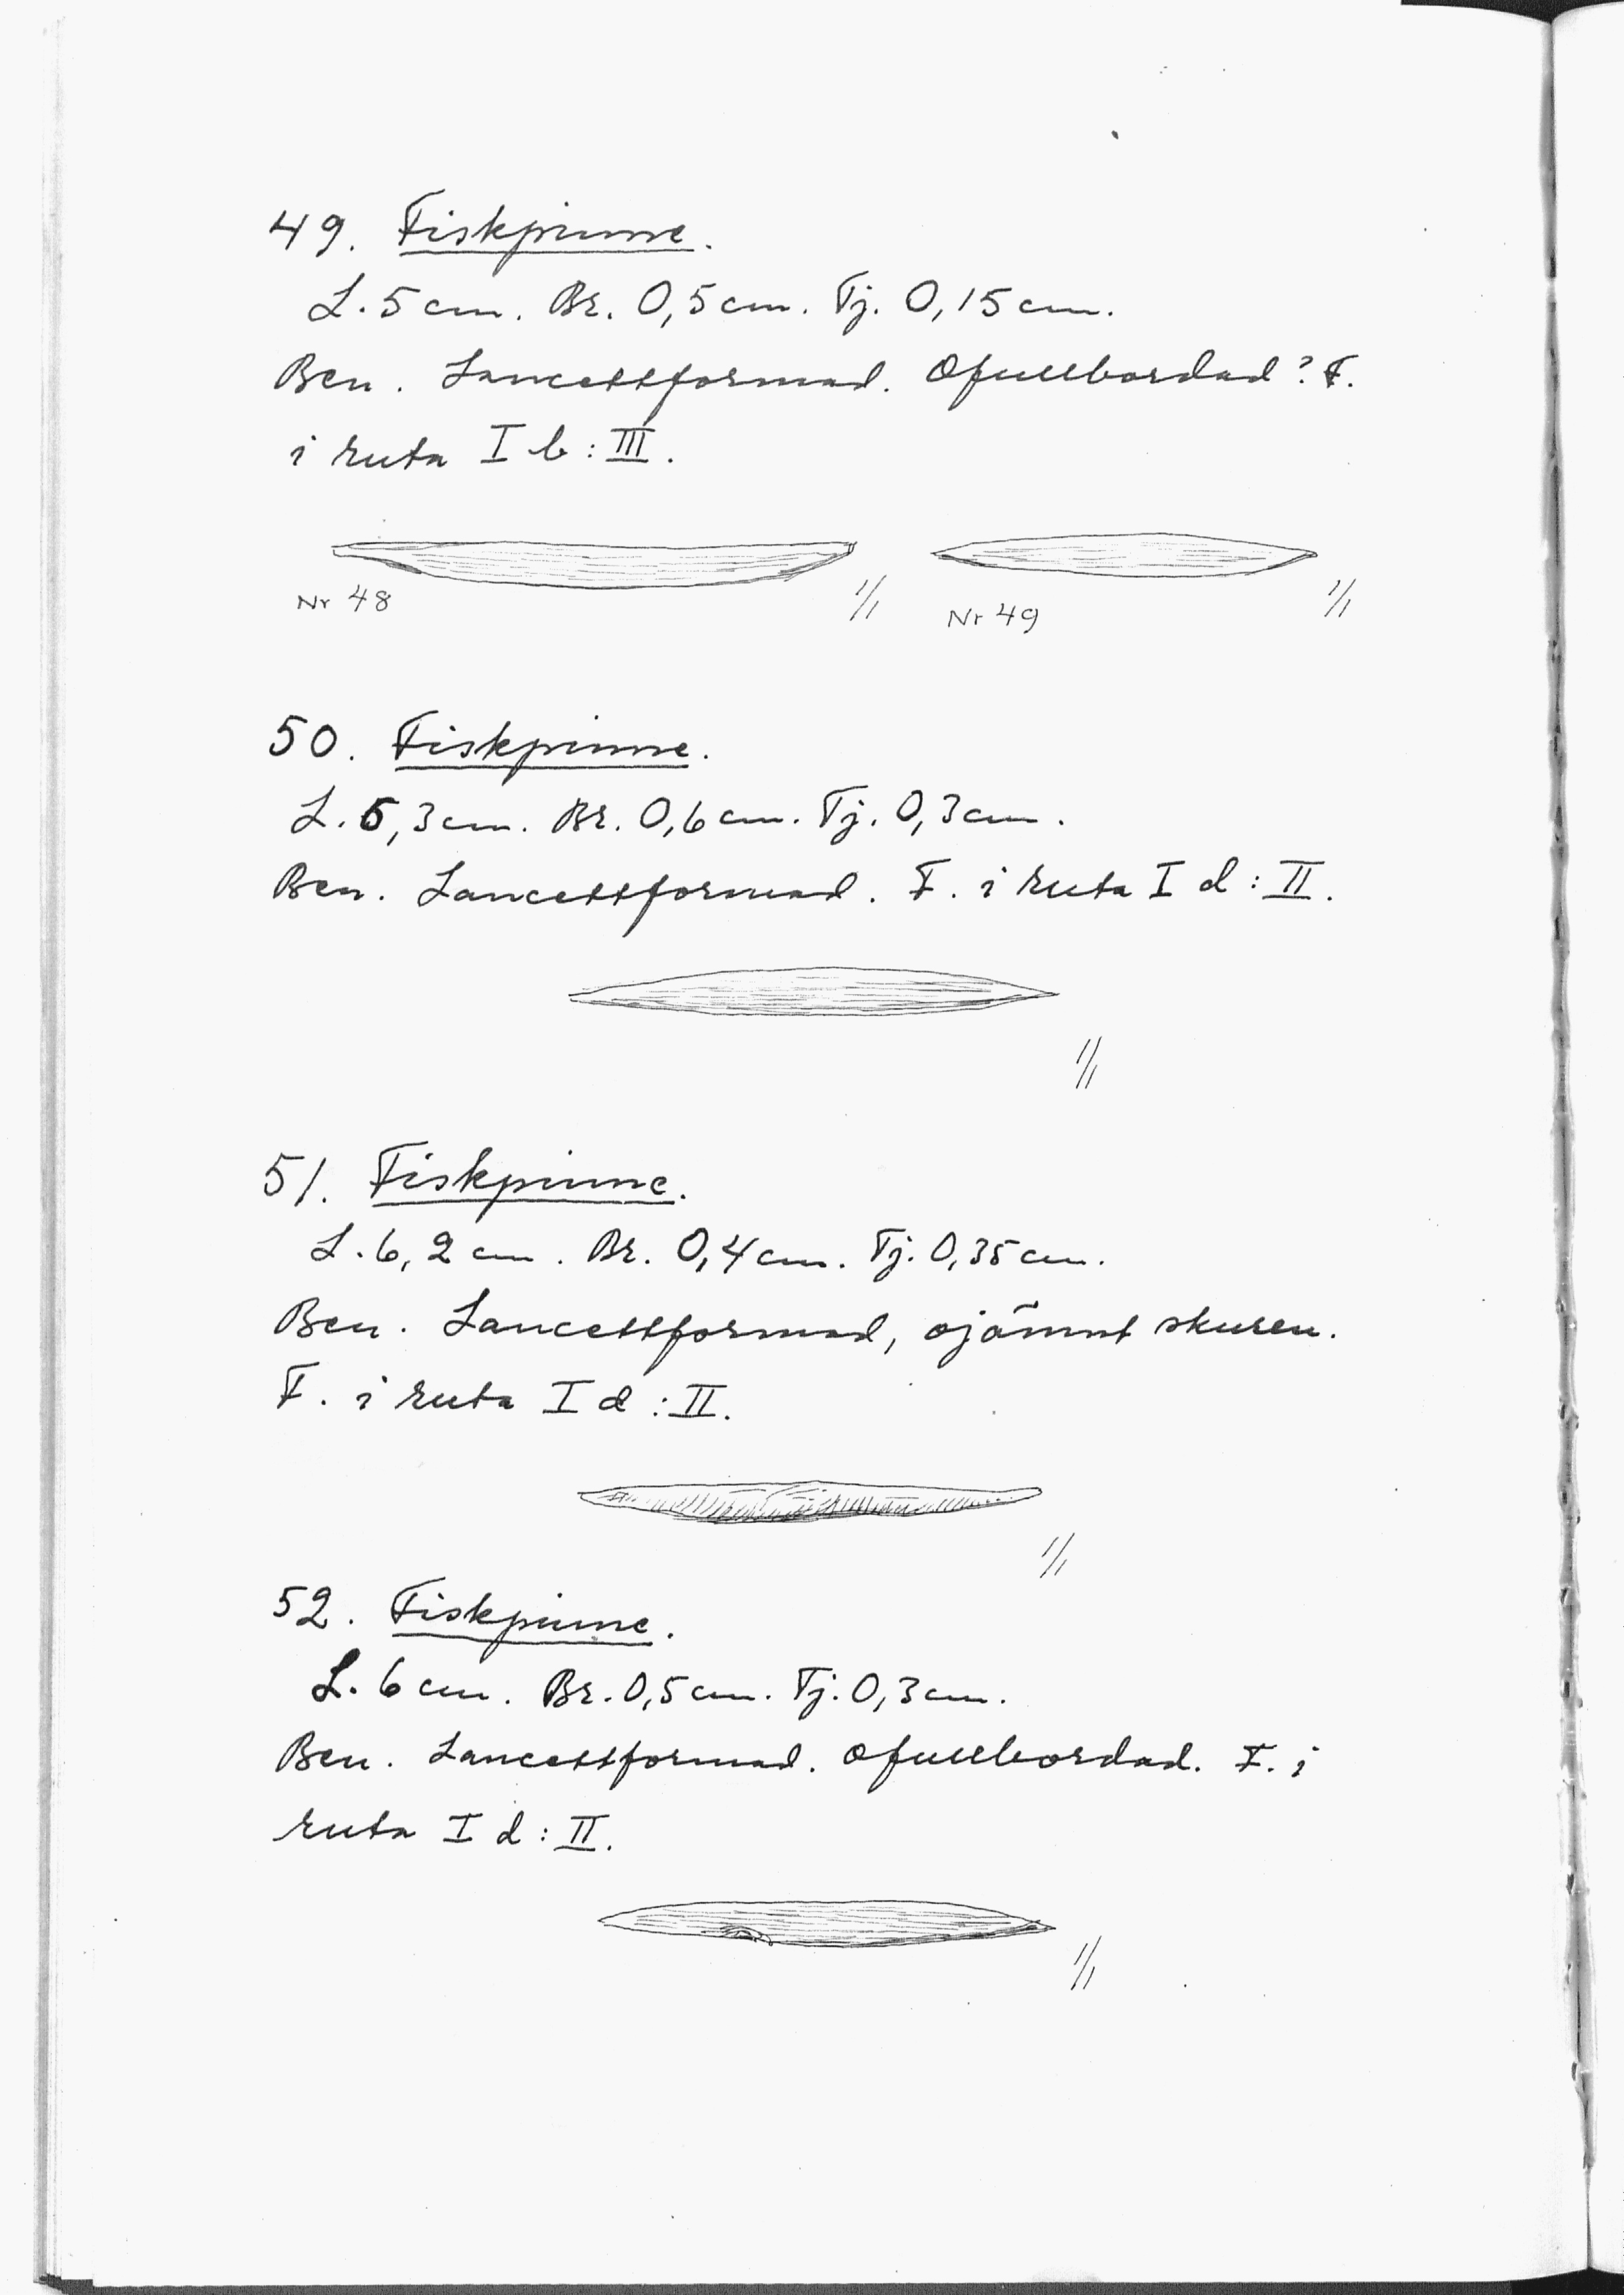 49. Fiskpinne.
L. 5 cm. Br. 0,5 cm. Tj. 0,15 cm.
Ben. Lancettformad. Ofullbordad? F.
i ruta I b : III.
Nr 48 1/1 Nr 49 1/1
50. Fiskpinne.
L. 6,3 cm. Br. 0,6 cm. Tj. 0,3 cm.
Ben. Lancettformad. F. i ruta I d : II.
1/1
51. Fiskpinne.
L. 6,2 cm. Br. 0,4 cm. Tj. 0,35 cm.
Ben. Lancettformad, ojämnt skuren.
F. i ruta I d : II.
1/1
52. Fiskpinne.
L. 6 cm. Br. 0,5 cm. Tj. 0,3 cm.
Ben. Lancettformad. Ofullbordad. F. i
ruta I d : II.
1/1